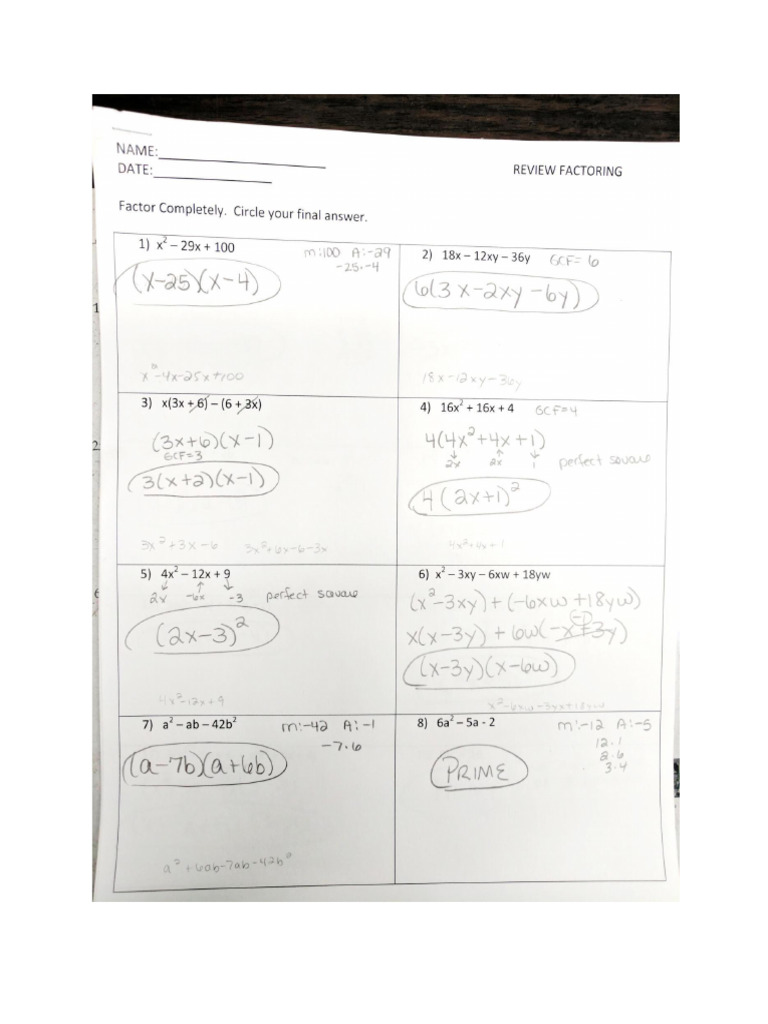 NAME:
DATE:
REVIEW FACTORING
Factor Completely. Circle your final answer.
1) x² – 29x + 100
m:100 A:-29
-25·-4
(x-25)(x-4)
x²-4x-25x+100
2) 18x – 12xy – 36y
GCF= 6
6(3x-2xy-6y)
18x-12xy-36y
3) x(3x + 6) – (6 + 3x)
(3x+6)(x-1)
GCF=3
3(x+2)(x-1)
3x²+3x-6 3x²+6x-6-3x
4) 16x² + 16x + 4
GCF=4
4(4x²+4x+1)
2x 2x 1 perfect square
4(2x+1)²
4x²+4x+1
5) 4x² – 12x + 9
2x -6x -3 perfect square
(2x-3)²
4x²-12x+9
6) x² – 3xy – 6xw + 18yw
(x²-3xy)+(-6xw+18yw)
x(x-3y)+6w(-x+3y)
(x-3y)(x-6w)
7) a² – ab – 42b²
m:-42 A:-1
-7·6
(a-7b)(a+6b)
a²+6ab-7ab-42b²
8) 6a² – 5a - 2
m:-12 A:-5
12·1
2·6
3·4
PRIME